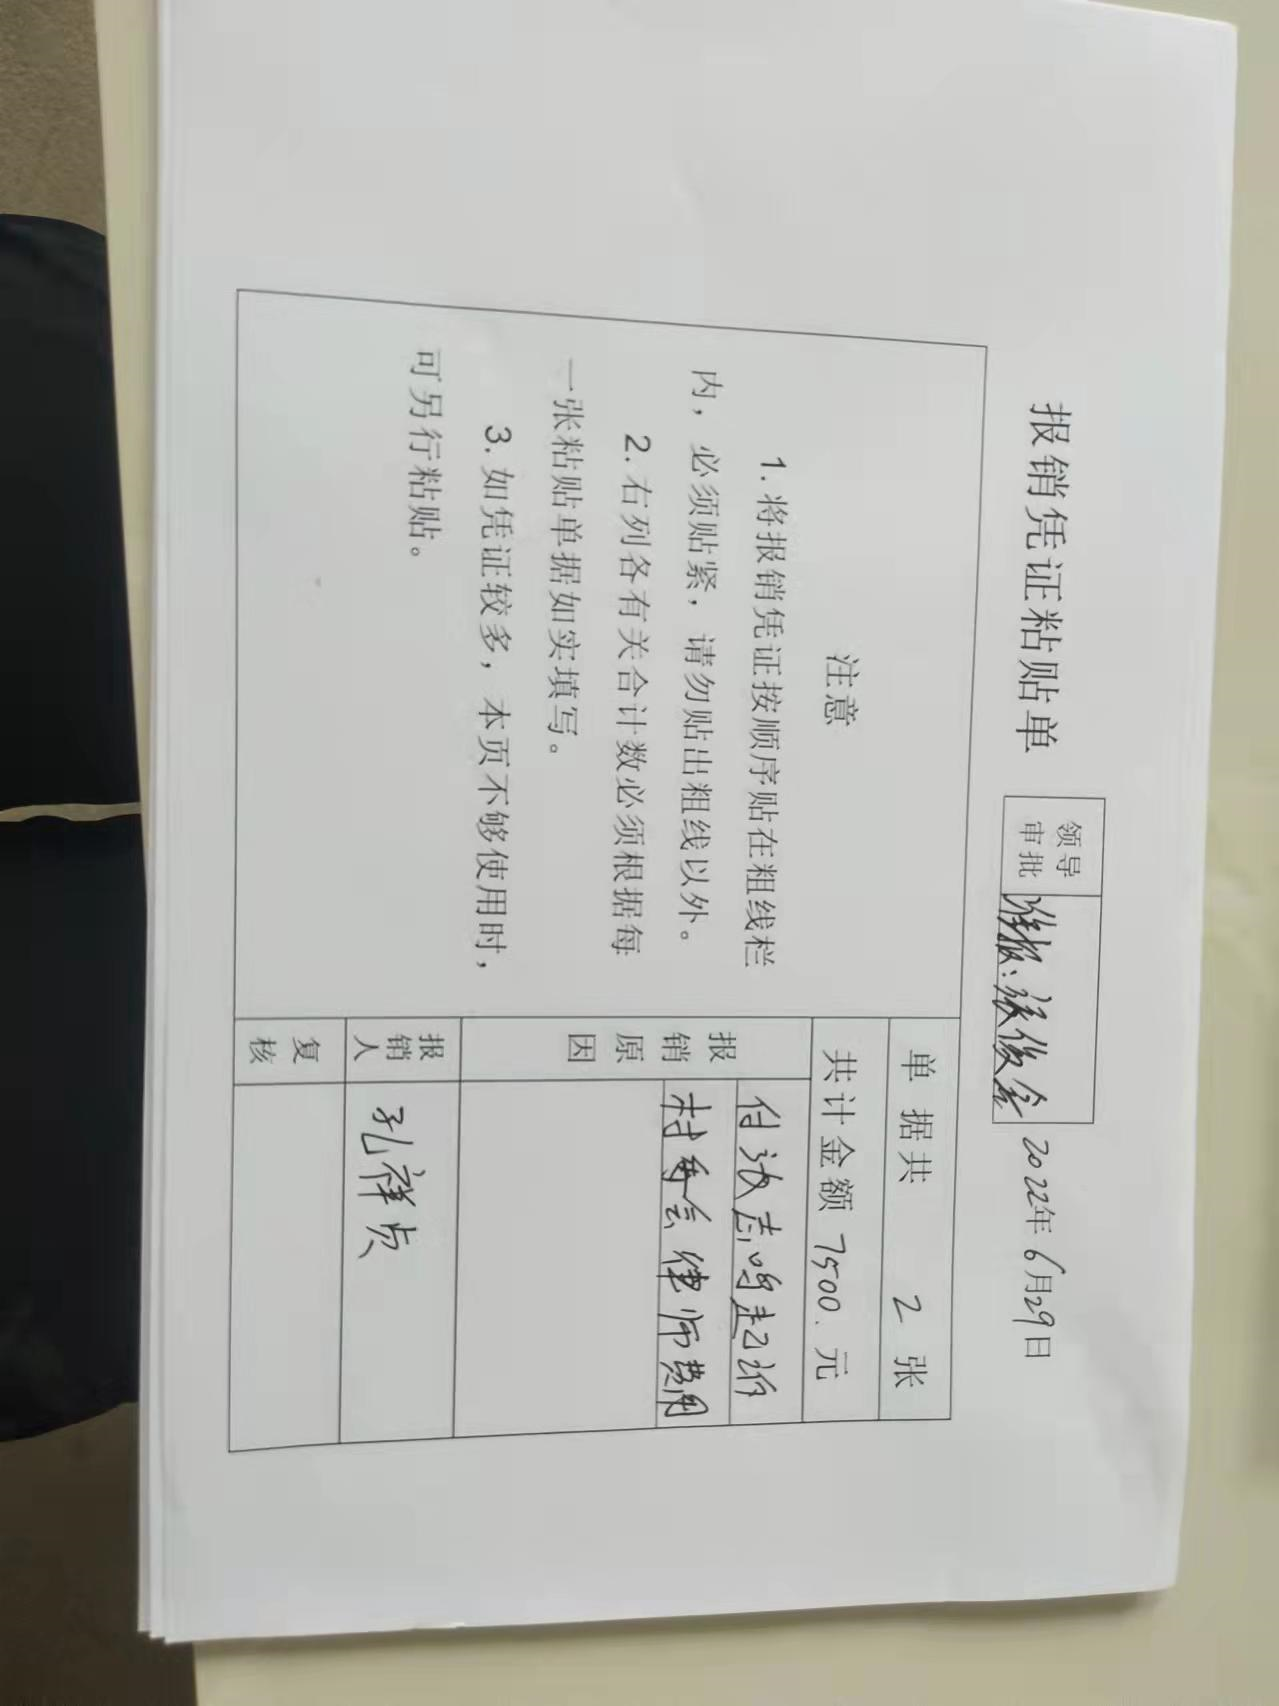 报销凭证粘贴单
领导
审批
准报:张俊金
2022年6月29日
注意
1.将报销凭证按顺序贴在粗线栏
内,必须贴紧,请勿贴出粗线以外。
2.右列各有关合计数必须根据每
一张粘贴单据如实填写。
3.如凭证较多,本页不够使用时,
可另行粘贴。
单据共 2 张
共计金额 7500.元
报销原因
付张志鸣起诉
村委会律师费用
报销人
孔祥贞
复核